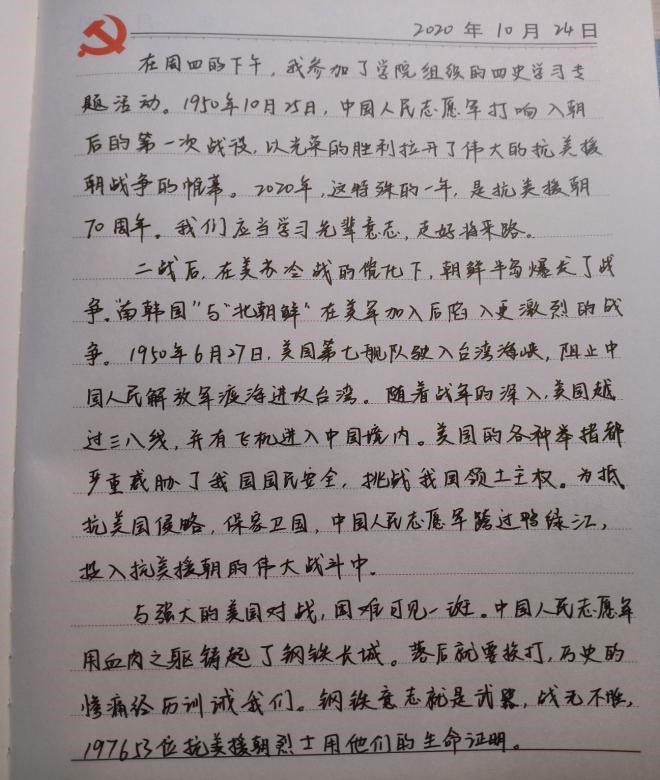 2020 年 10 月 24 日
在周四的下午，我参加了学院组织的四史学习专
题活动。1950年10月25日，中国人民志愿军打响入朝
后的第一次战役，以光荣的胜利拉开了伟大的抗美援
朝战争的帷幕。2020年，这特殊的一年，是抗美援朝
70周年。我们应当学习先辈意志，走好将来路。
二战后，在美苏冷战的催化下，朝鲜半岛爆发了战
争。“南韩国”与“北朝鲜”在美军加入后陷入更激烈的战
争。1950年6月27日，美国第七舰队驶入台湾海峡，阻止中
国人民解放军渡海进攻台湾。随着战争的深入，美国越
过三八线，并有飞机进入中国境内。美国的各种举措都
严重威胁了我国国民安全，挑战我国领土主权。为抵
抗美国侵略，保家卫国，中国人民志愿军跨过鸭绿江，
投入抗美援朝的伟大战斗中。
与强大的美国对战，困难可见一斑。中国人民志愿军
用血肉之躯铸起了钢铁长城。落后就要挨打，历史的
惨痛经历训诫我们。钢铁意志就是武器，战无不胜，
197653位抗美援朝烈士用他们的生命证明。